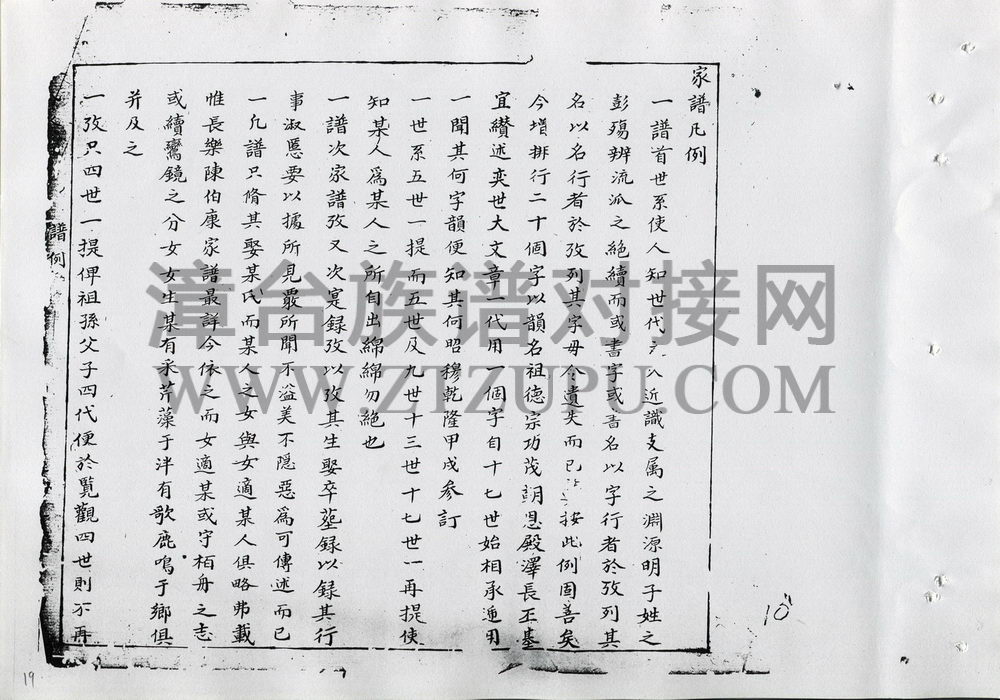 家譜凡例
一譜首世系使人知世代之以近識支属之淵源明子姓之
彭殤辨流派之絕續而或書字或書名以字行者於攷列其
名以名行者於攷列其字毋令遺失而已 按此例固善矣
今增排行二十個字以韻名祖德宗功茂朝恩殿澤長丕基
宜纉述奕世大文章一代用一個字自十七世始相承連用
一聞其何字韻便知其何昭穆乾隆甲戌参訂
一世系五世一提而五世及九世十三世十七世一再提使
知某人為某人之所自出綿綿勿絕也
一譜次家譜攷又次寔録攷以攷其生娶卒塟録以録其行
事淑慝要以據所見覈所聞不溢美不隠惡為可傳述而已
一凡譜只脩其娶某氏而某人之女與女適某人俱略弗載
惟長樂陳伯康家譜最詳今依之而女適某或守栢舟之志
或續鸞鏡之分女女生某有采芹藻于泮有歌鹿鳴于鄉俱
并及之
一攷只四世一提俾祖孫父子四代便於覧觀四世則不再
譜例
10
19
漳台族谱对接网
WWW.ZTZUPU.COM